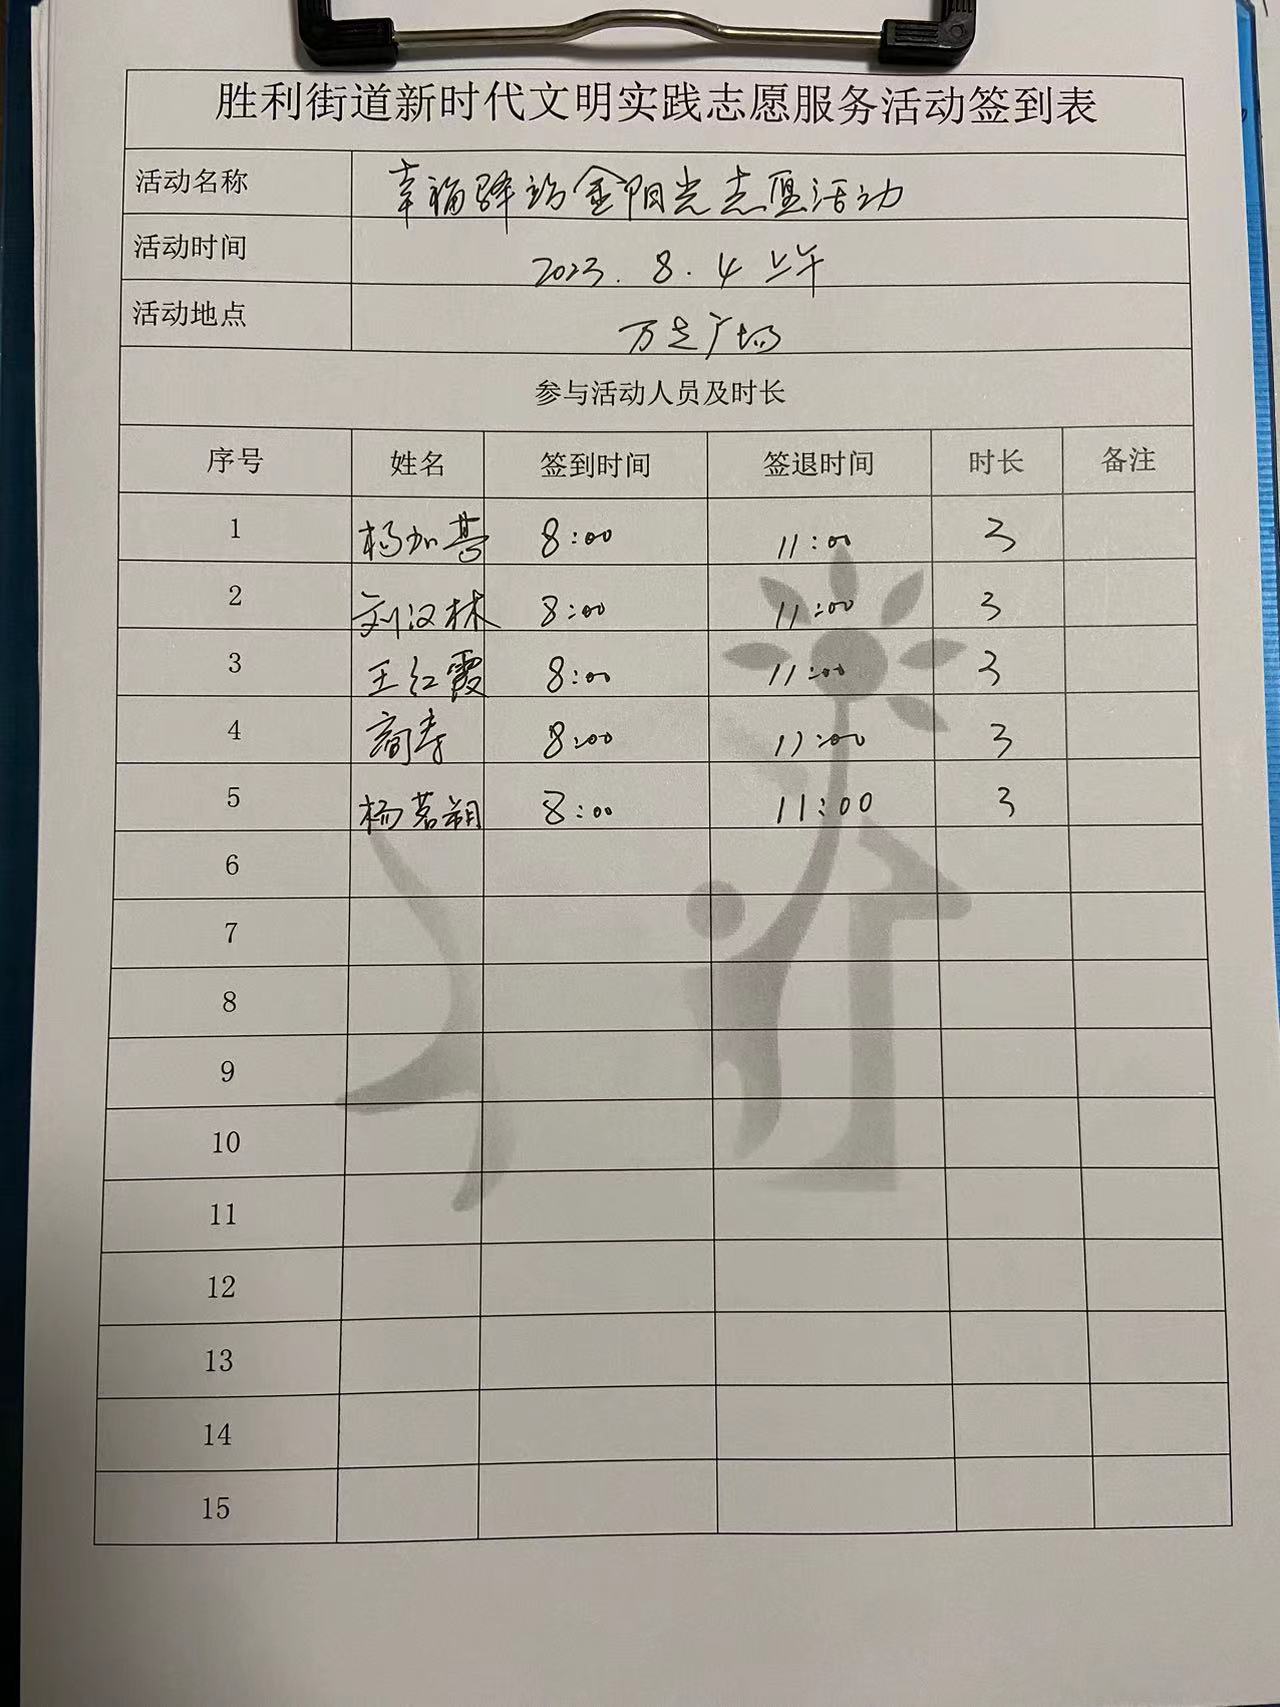 胜利街道新时代文明实践志愿服务活动签到表
活动名称 幸福驿站金阳光志愿活动
活动时间 2023. 8. 4 上午
活动地点 万达广场
参与活动人员及时长
序号 姓名 签到时间 签退时间 时长 备注
1 8:00 11:00 3
2 刘汉林 8:00 11:00 3
3 王红霞 8:00 11:00 3
4 8:00 11:00 3
5 杨茗朝 8:00 11:00 3
6
7
8
9
10
11
12
13
14
15